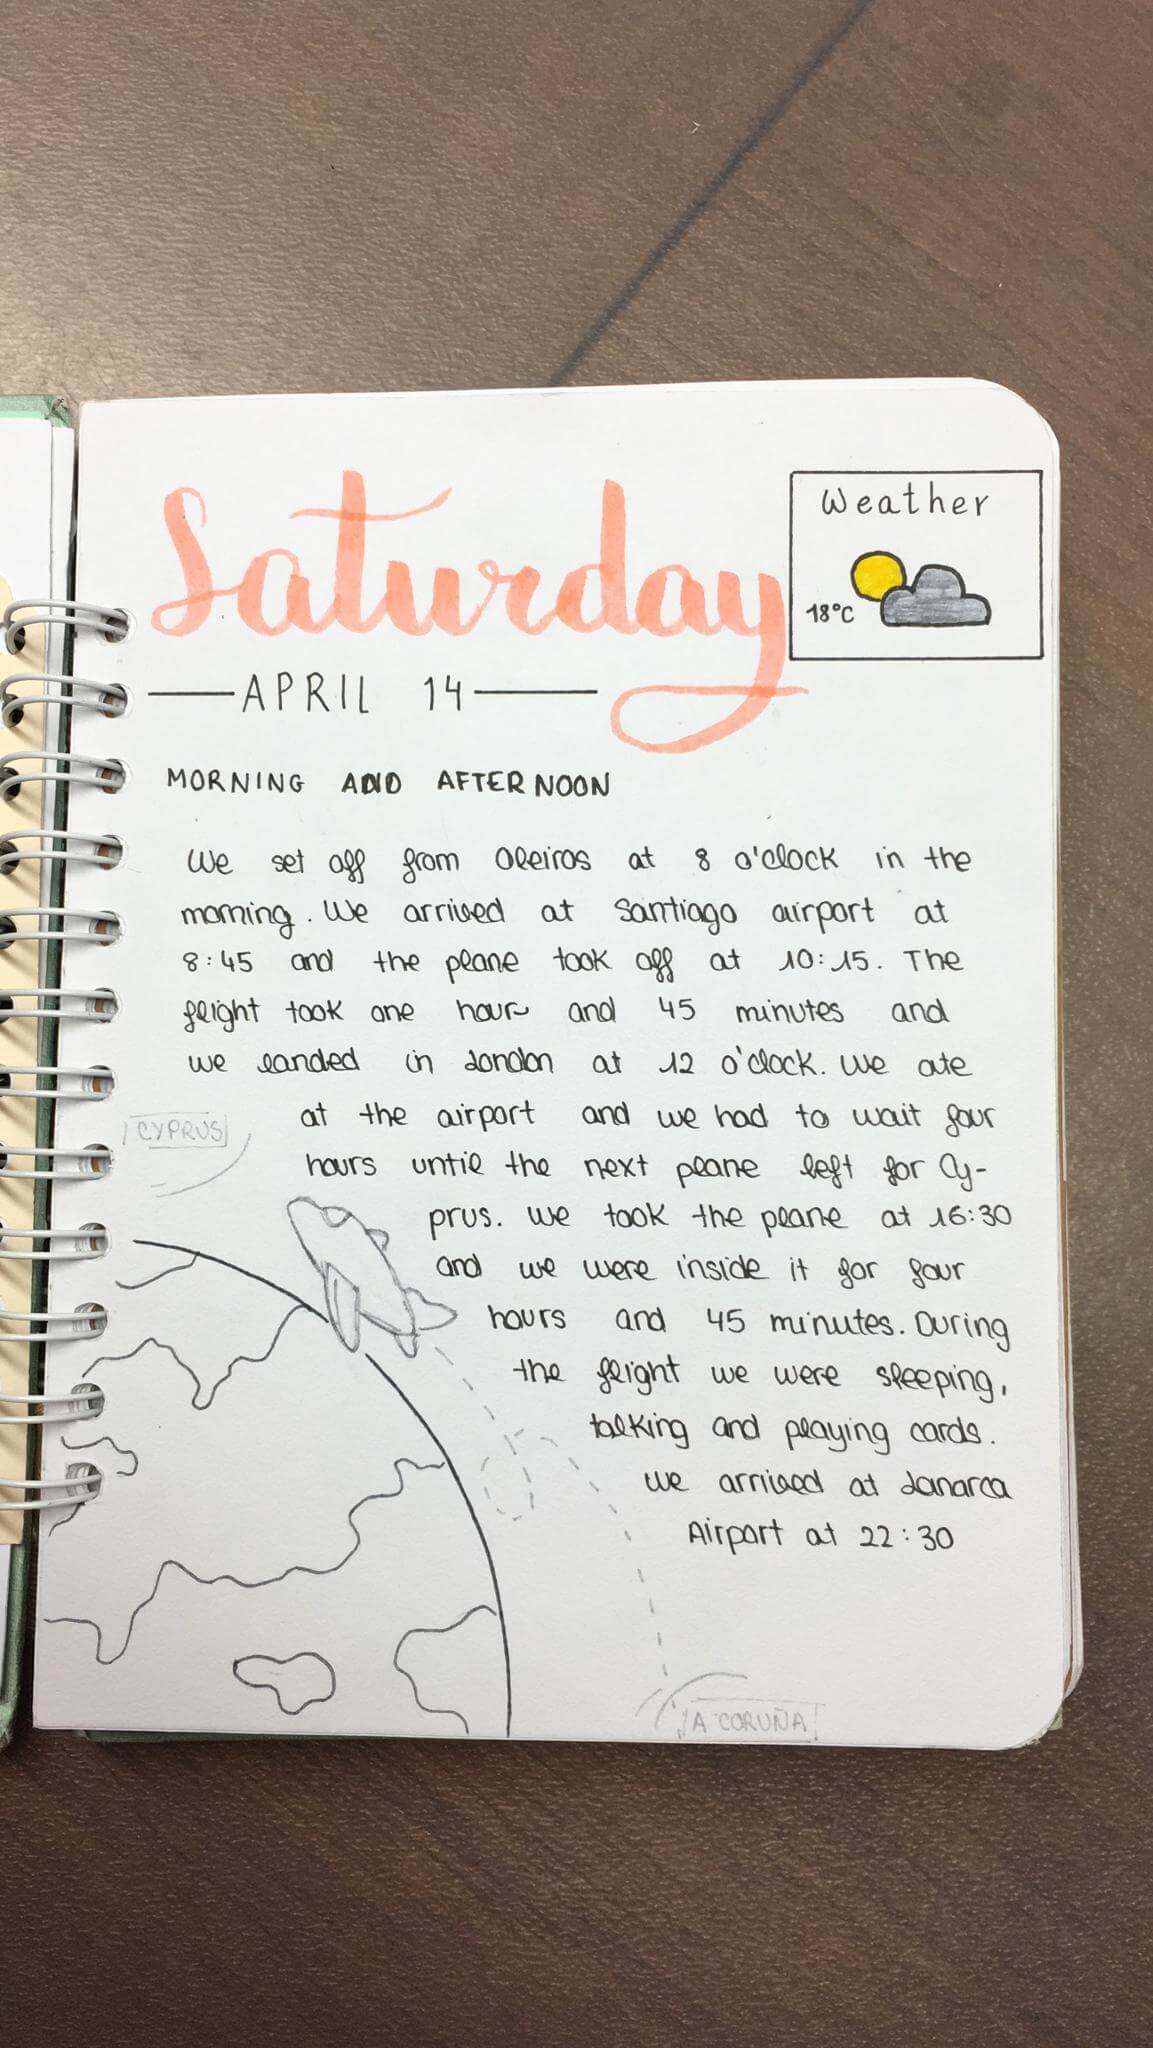 Saturday
Weather
18°C
APRIL 14
MORNING AND AFTERNOON
We set off from Oleiros at 8 o'clock in the
morning. We arrived at Santiago airport at
8:45 and the plane took off at 10:15. The
flight took one hour and 45 minutes and
we landed in London at 12 o'clock. We ate
at the airport and we had to wait four
hours until the next plane left for Cy-
prus. We took the plane at 16:30
and we were inside it for four
hours and 45 minutes. During
the flight we were sleeping,
talking and playing cards.
We arrived at Lanarca
Airport at 22:30
CYPRUS
A CORUÑA